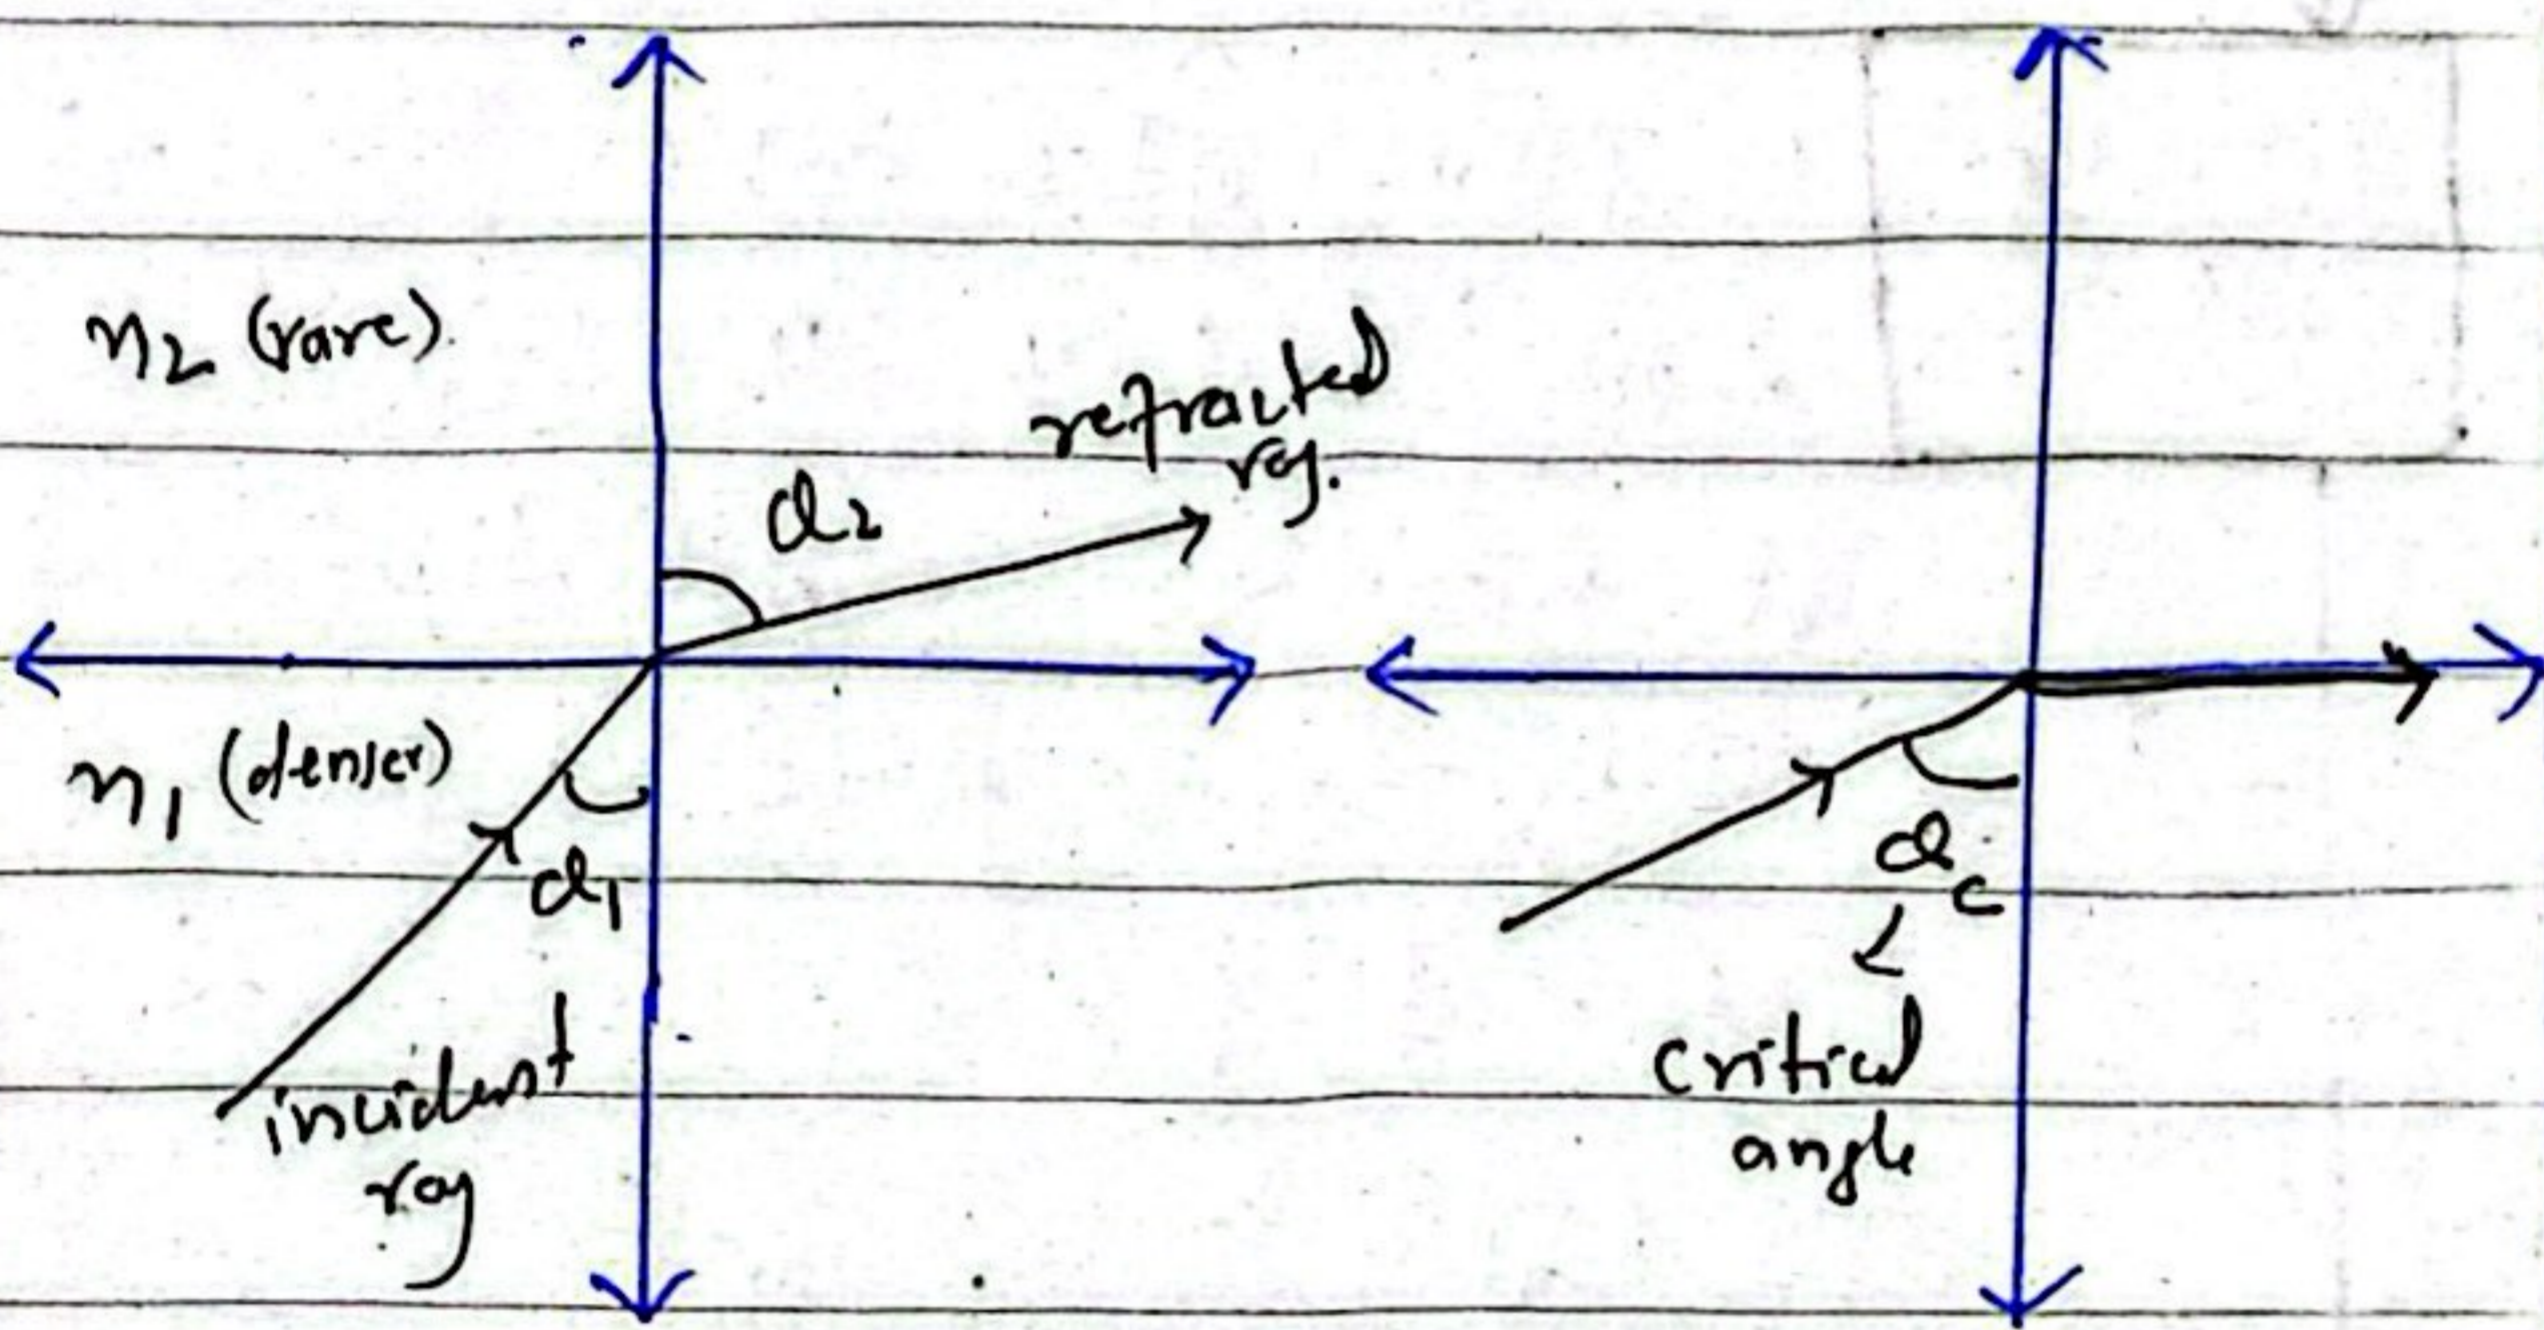 n2 (rare).
refracted
ray.
α2
n1 (denser)
α1
incident
ray
αc
critical
angle